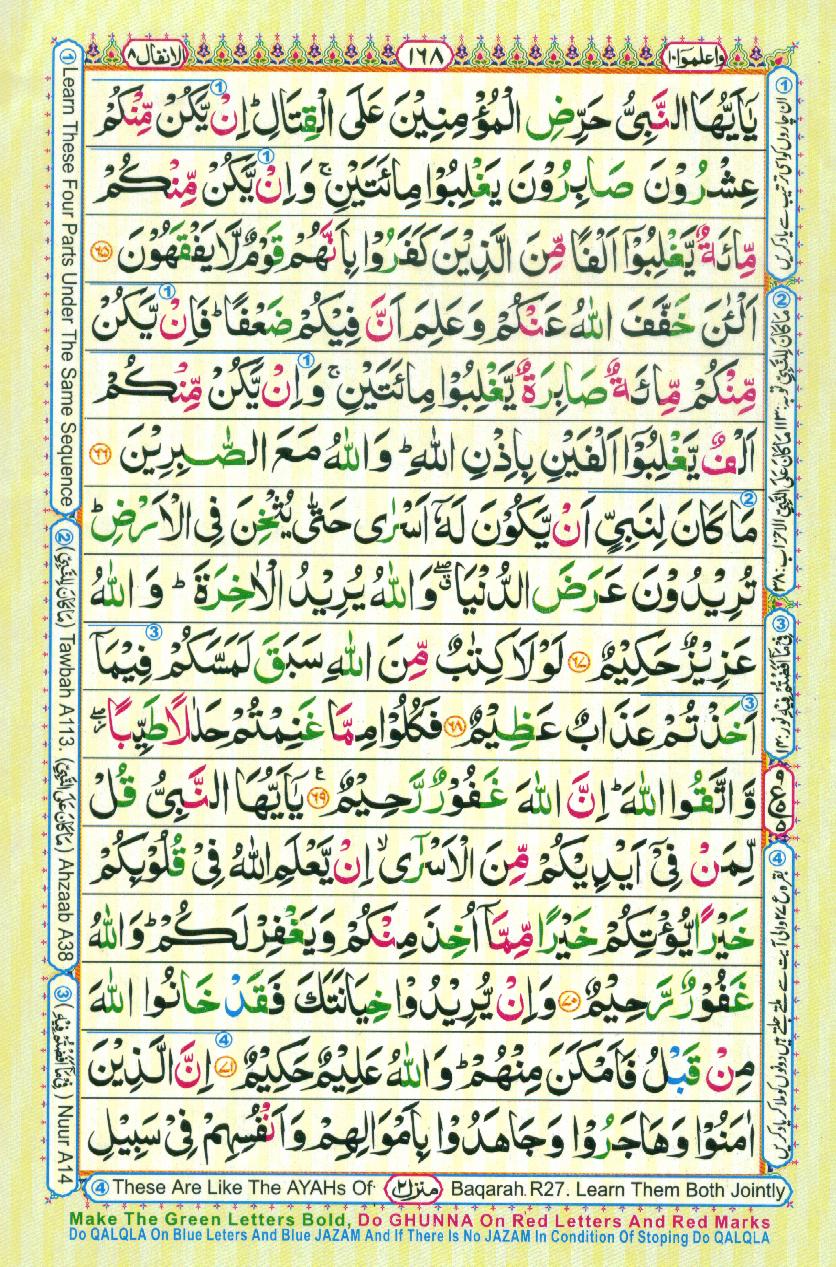 واعلموا١٠
١٦٨
الانفال٨
يٰۤاَيُّهَا النَّبِىُّ حَرِّضِ الْمُؤْمِنِيْنَ عَلَى الْقِتَالِ ؕ اِنْ يَّكُنْ مِّنْكُمْ
عِشْرُوْنَ صَابِرُوْنَ يَغْلِبُوْا مِائَتَيْنِ ۚ وَاِنْ يَّكُنْ مِّنْكُمْ
مِّائَةٌ يَّغْلِبُوْۤا اَلْفًا مِّنَ الَّذِيْنَ كَفَرُوْا بِاَنَّهُمْ قَوْمٌ لَّا يَفْقَهُوْنَ ۝٦٥
اَلْـٰٔنَ خَفَّفَ اللّٰهُ عَنْكُمْ وَعَلِمَ اَنَّ فِيْكُمْ ضَعْفًا ؕ فَاِنْ يَّكُنْ
مِّنْكُمْ مِّائَةٌ صَابِرَةٌ يَّغْلِبُوْا مِائَتَيْنِ ۚ وَاِنْ يَّكُنْ مِّنْكُمْ
اَلْفٌ يَّغْلِبُوْۤا اَلْفَيْنِ بِاِذْنِ اللّٰهِ ؕ وَاللّٰهُ مَعَ الصّٰبِرِيْنَ ۝٦٦
مَا كَانَ لِنَبِىٍّ اَنْ يَّكُوْنَ لَهٗۤ اَسْرٰى حَتّٰى يُثْخِنَ فِى الْاَرْضِ ؕ
تُرِيْدُوْنَ عَرَضَ الدُّنْيَا ۖۗ وَاللّٰهُ يُرِيْدُ الْاٰخِرَةَ ؕ وَاللّٰهُ
عَزِيْزٌ حَكِيْمٌ ۝٦٧ لَوْلَا كِتٰبٌ مِّنَ اللّٰهِ سَبَقَ لَمَسَّكُمْ فِيْمَاۤ
اَخَذْتُمْ عَذَابٌ عَظِيْمٌ ۝٦٨ فَكُلُوْا مِمَّا غَنِمْتُمْ حَلٰلًا طَيِّبًا ۖ
وَّاتَّقُوا اللّٰهَ ؕ اِنَّ اللّٰهَ غَفُوْرٌ رَّحِيْمٌ ۝٦٩ يٰۤاَيُّهَا النَّبِىُّ قُلْ
لِّمَنْ فِىْۤ اَيْدِيْكُمْ مِّنَ الْاَسْرٰۤى ۙ اِنْ يَّعْلَمِ اللّٰهُ فِىْ قُلُوْبِكُمْ
خَيْرًا يُّؤْتِكُمْ خَيْرًا مِّمَّاۤ اُخِذَ مِنْكُمْ وَيَغْفِرْ لَكُمْ ؕ وَاللّٰهُ
غَفُوْرٌ رَّحِيْمٌ ۝٧٠ وَاِنْ يُّرِيْدُوْا خِيَانَتَكَ فَقَدْ خَانُوا اللّٰهَ
مِنْ قَبْلُ فَاَمْكَنَ مِنْهُمْ ؕ وَاللّٰهُ عَلِيْمٌ حَكِيْمٌ ۝٧١ اِنَّ الَّذِيْنَ
اٰمَنُوْا وَهَاجَرُوْا وَجَاهَدُوْا بِاَمْوَالِهِمْ وَاَنْفُسِهِمْ فِىْ سَبِيْلِ
① Learn These Four Parts Under The Same Sequence
② (مَا كَانَ لِلنَّبِيِّ) Tawbah A113. (مَا كَانَ عَلَى النَّبِيِّ) Ahzaab A38
③ (فِيْ مَا اَفَضْتُمْ فِيْهِ) Nuur A14
① ان چاروں کو اسی ترتیب سے یاد کریں
④ These Are Like The AYAHs Of Baqarah.R27. Learn Them Both Jointly
منزل٢
Make The Green Letters Bold, Do GHUNNA On Red Letters And Red Marks
Do QALQLA On Blue Leters And Blue JAZAM And If There Is No JAZAM In Condition Of Stoping Do QALQLA